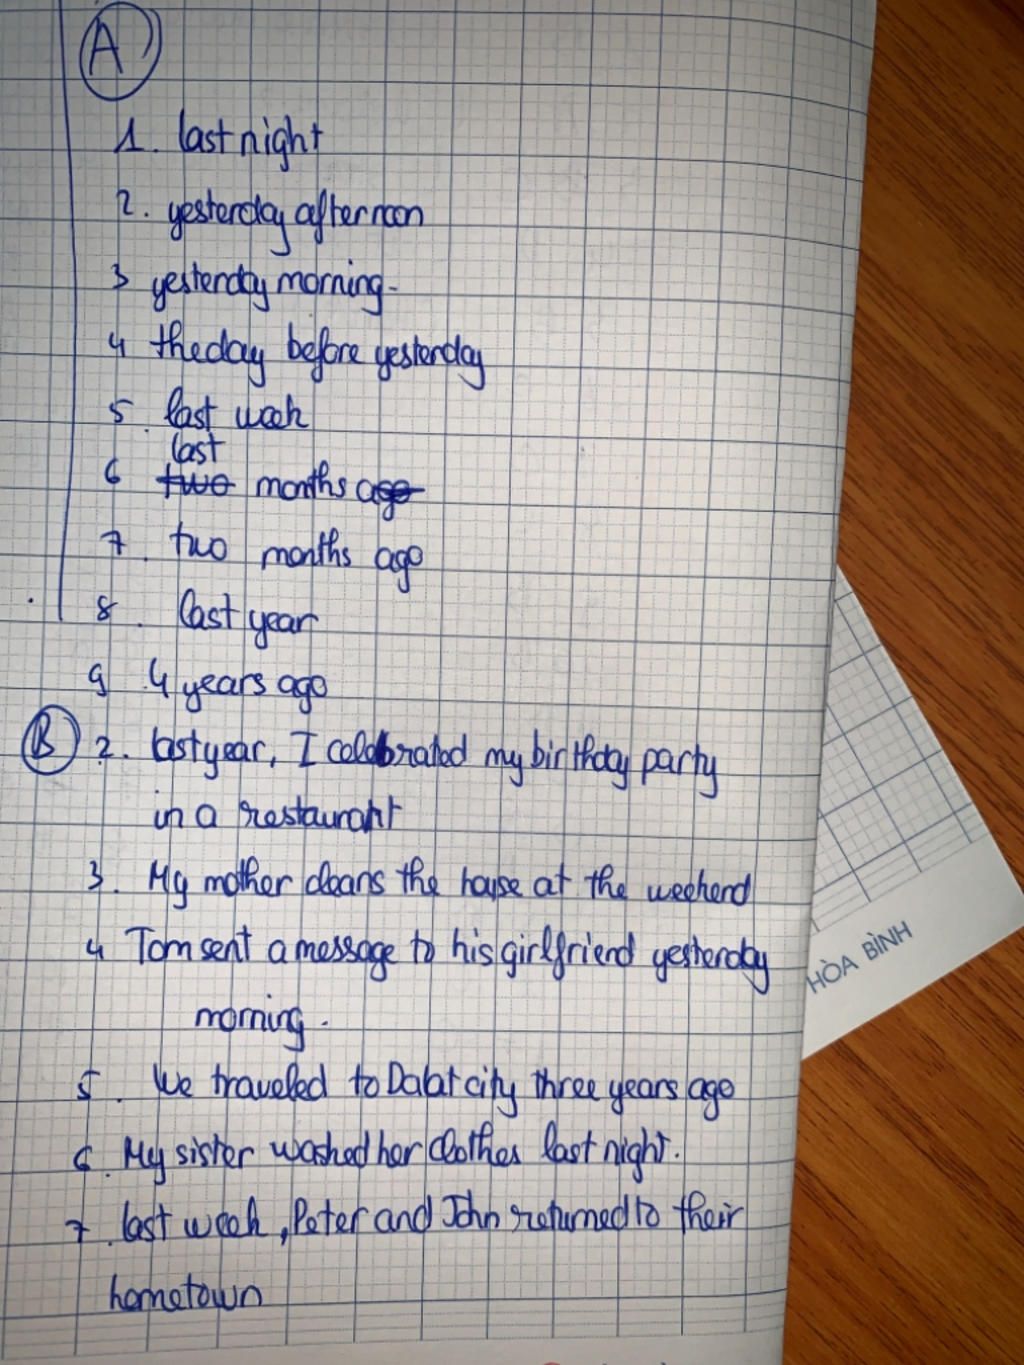 A
1. last night
2. yesterday afternoon
3 yesterday morning-
4 the day before yesterday
5. last week
last
6 two months ago
7. two months ago
8. last year
9 4 years ago
B 2. last year, I celebrated my birthday party
in a restaurant
3. My mother cleans the house at the weekend
4 Tom sent a message to his girlfriend yesterday
morning.
5. We traveled to Dalat city three years ago
6. My sister washed her clothes last night.
7. last week, Peter and John returned to their
hometown
HÒA BÌNH